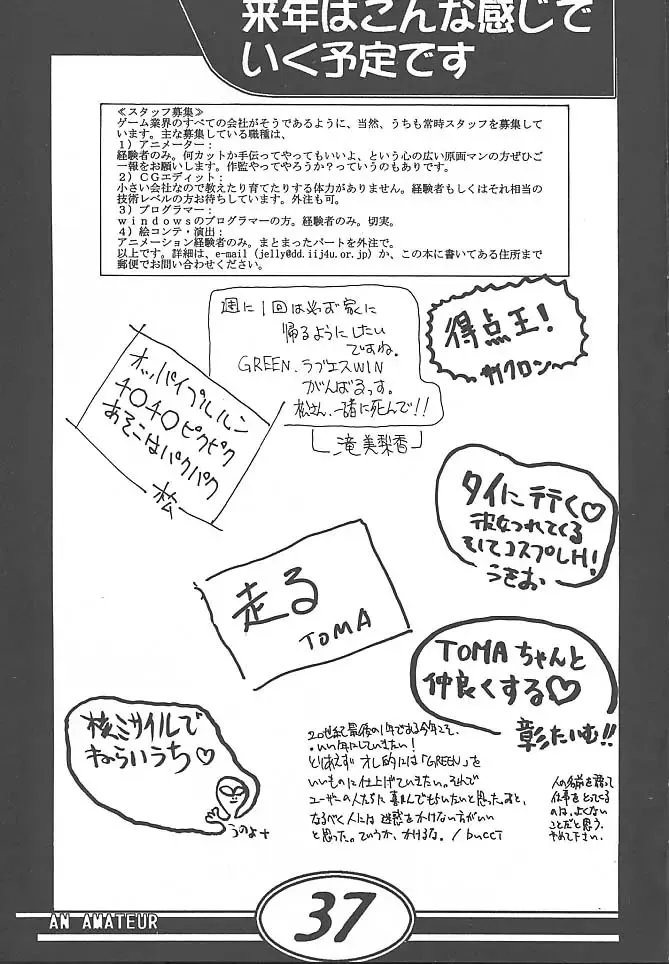 来年はこんな感じで
いく予定です
≪スタッフ募集≫
ゲーム業界のすべての会社がそうであるように、当然、うちも常時スタッフを募集して
います。主な募集している職種は、
1）アニメーター：
経験者のみ。何カットか手伝ってやってもいいよ、という心の広い原画マンの方ぜひご
一報をお願いします。作監やってやろうか？っていうのもありです。
2）CGエディット：
小さい会社なので教えたり育てたりする体力がありません。経験者もしくはそれ相当の
技術レベルの方お待ちしています。外注も可。
3）プログラマー：
windowsのプログラマーの方。経験者のみ。切実。
4）絵コンテ・演出：
アニメーション経験者のみ。まとまったパートを外注で。
以上です。詳細は、e-mail（jelly@dd.iij4u.or.jp）か、この本に書いてある住所まで
郵便でお問い合わせください。
週に1回は必ず家に
帰るようにしたい
ですね。
GREEN、ラブエスWIN
がんばるっす。
松さん、一緒に死んで!!
滝美梨香
得点王!
サイクロン
オッパイプルルン
4040ピクピク
あそこはパクパク
松
タイに行く♡
彼女つれてくる
そしてコスプレH!
うきお
走る
TOMA
TOMAちゃんと
仲良くする♡
彰たいむ!!
核ミサイルで
ねらいうち♡
うのよ+
20世紀最後の1年である今年こそ、
いい年にしていきたい!
とりあえず オレ的には「GREEN」を
いいものに仕上げていきたい。そんで
ユーザーの人たちに喜んでもらいたいと思った。あと、
なるべく人には迷惑をかけない方がいい
と思った。ていうか、かけるな。/bucci
人の名前を語って
仕事をとってくる
のは、よくない
ことだと思う。
やめて下さい。
AN AMATEUR
37